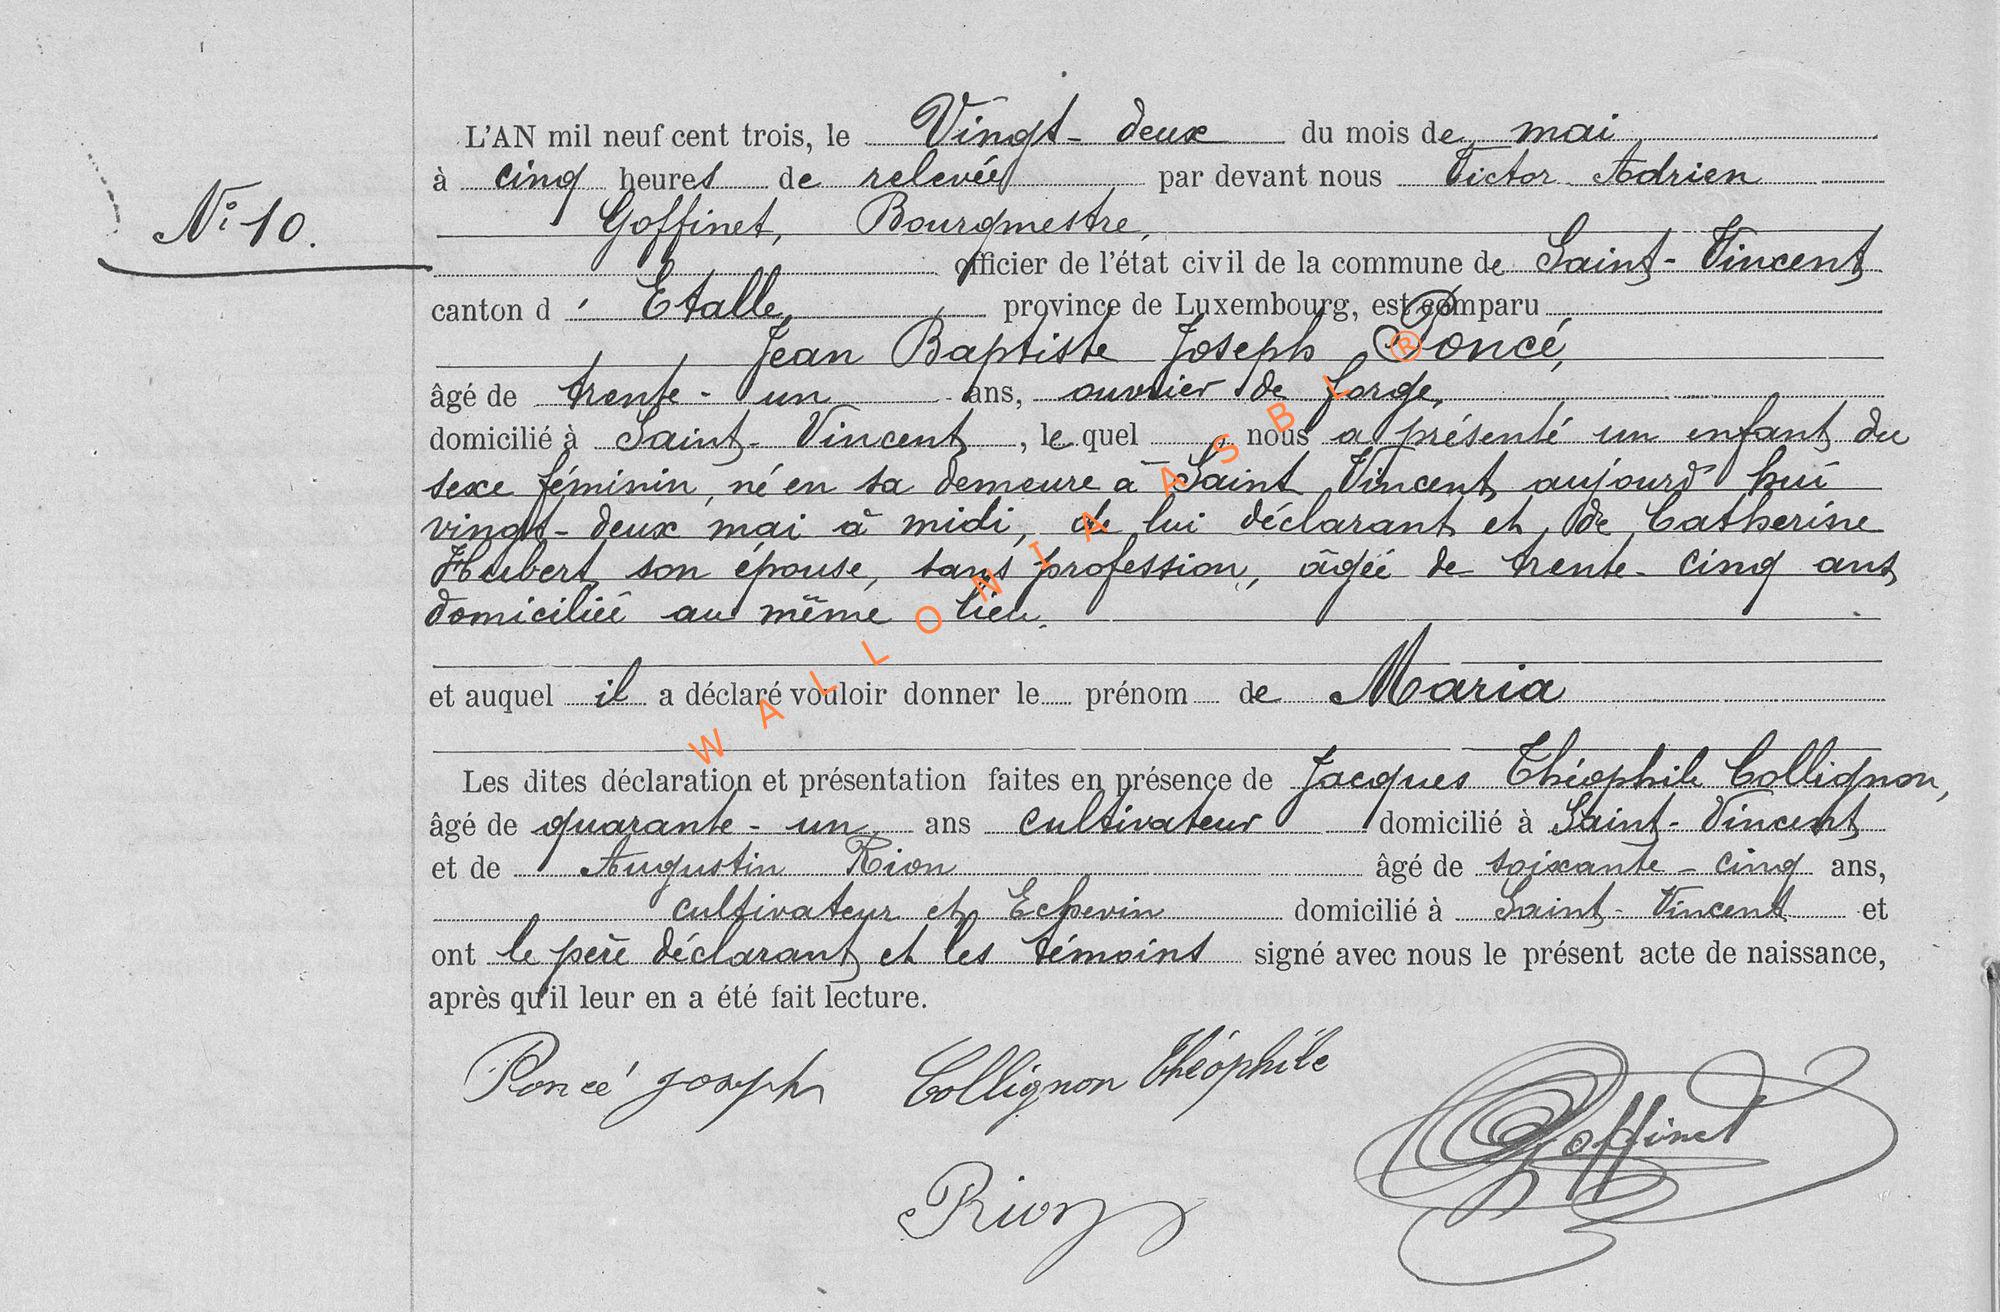 L'AN mil neuf cent trois, le Vingt-deux du mois de mai
à cinq heures de relevée par devant nous Victor Adrien
N° 10.
Goffinet, Bourgmestre,
officier de l'état civil de la commune de Saint-Vincent
canton d'Etalle, province de Luxembourg, est comparu
Jean Baptiste Joseph Poncé,
âgé de trente-un ans, ouvrier de forge,
domicilié à Saint-Vincent, le quel nous a présenté un enfant du
sexe féminin, né en sa demeure à Saint Vincent aujourd'hui
vingt-deux mai à midi, de lui déclarant et de Catherine
Hubert son épouse, sans profession, âgée de trente-cinq ans
domiciliée au même lieu.
et auquel il a déclaré vouloir donner le prénom de Maria
Les dites déclaration et présentation faites en présence de Jacques Théophile Collignon,
âgé de quarante-un ans cultivateur domicilié à Saint-Vincent
et de Augustin Rion âgé de soixante-cinq ans,
cultivateur et Echevin domicilié à Saint-Vincent et
ont le père déclarant et les témoins signé avec nous le présent acte de naissance,
après qu'il leur en a été fait lecture.
Poncé Joseph Collignon Théophile
Goffinet
Rion
WALLONIA ASBL ®